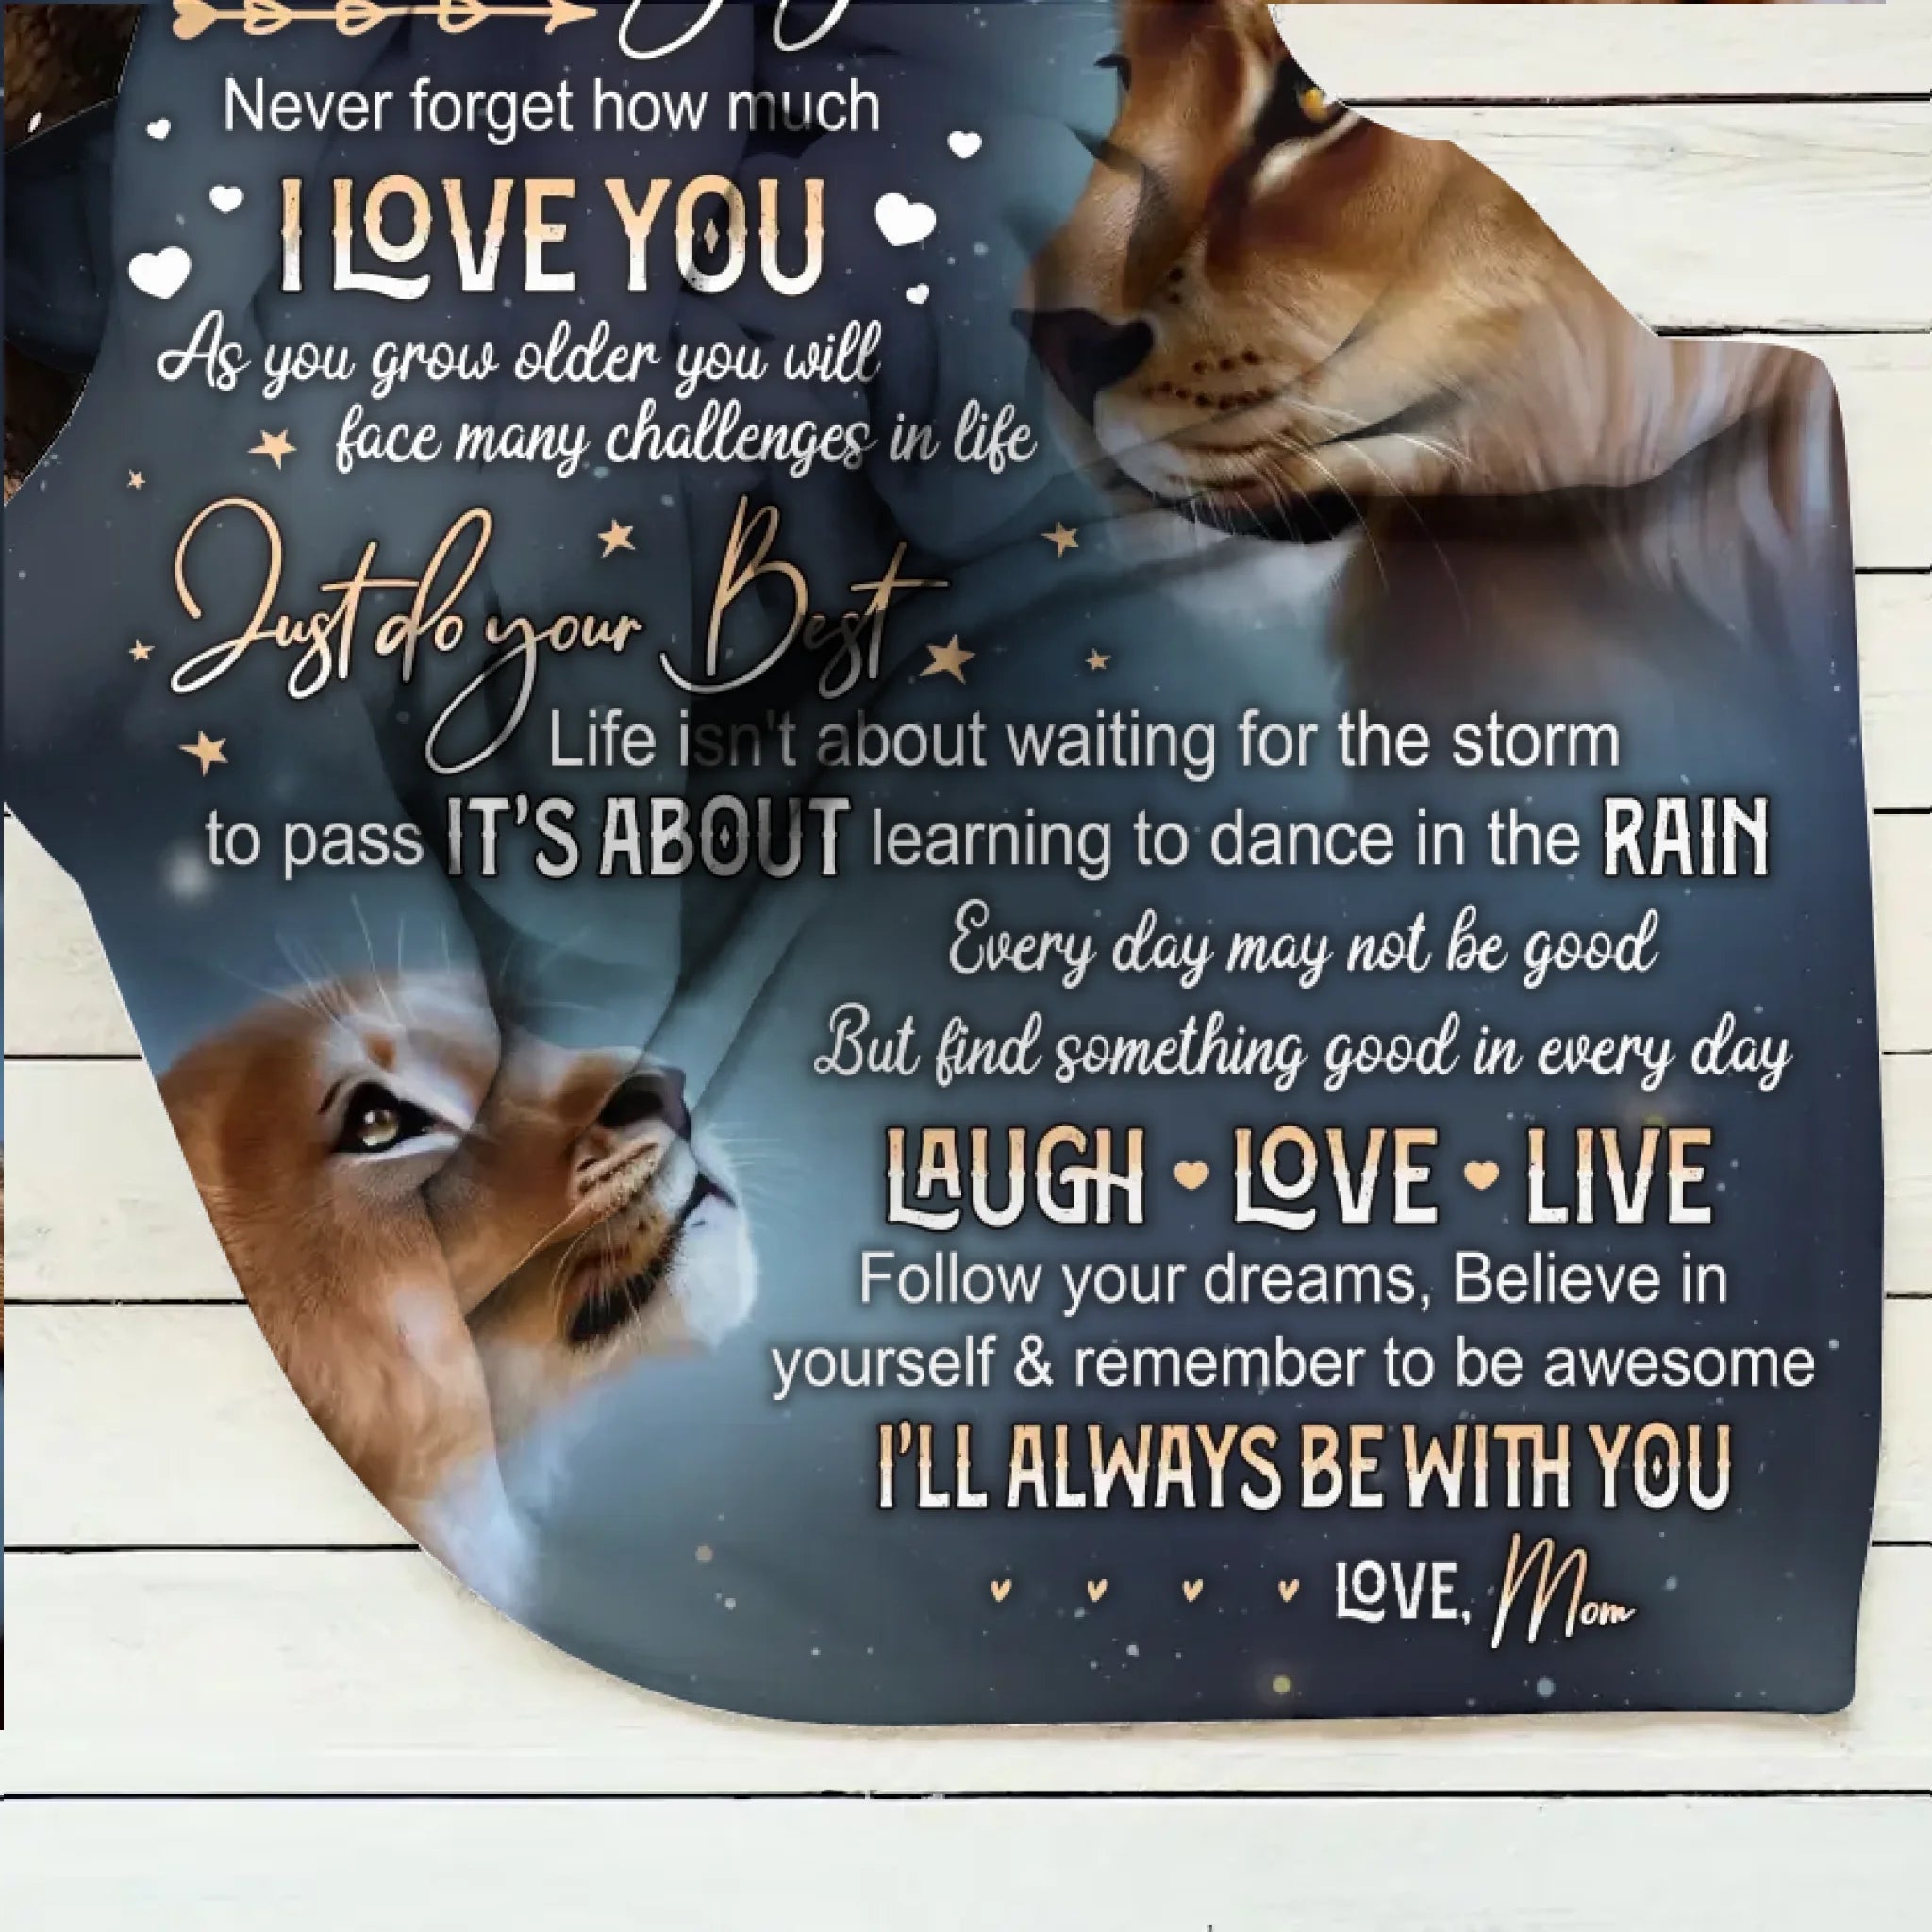 Never forget how much
I LOVE YOU
As you grow older you will
face many challenges in life
Just do your Best
Life isn't about waiting for the storm
to pass IT'S ABOUT learning to dance in the RAIN
Every day may not be good
But find something good in every day
LAUGH LOVE LIVE
Follow your dreams, Believe in
yourself & remember to be awesome
I'LL ALWAYS BE WITH YOU
LOVE, Mom